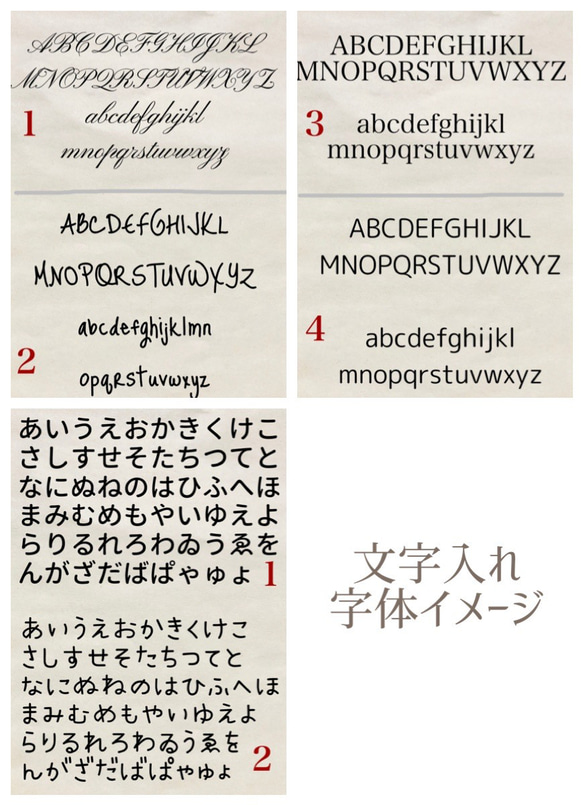 ABCDEFGHIJKL
MNOPQRSTUVWXYZ
1
abcdefghijkl
mnopqrstuvwxyz
ABCDEFGHIJKL
MNOPQRSTUVWXYZ
abcdefghijklmn
2
opqrstuvwxyz
ABCDEFGHIJKL
MNOPQRSTUVWXYZ
3
abcdefghijkl
mnopqrstuvwxyz
ABCDEFGHIJKL
MNOPQRSTUVWXYZ
4
abcdefghijkl
mnopqrstuvwxyz
あいうえおかきくけこ
さしすせそたちつてと
なにぬねのはひふへほ
まみむめもやいゆえよ
らりるれろわゐうゑを
んがざだばぱゃゅょ 1
あいうえおかきくけこ
さしすせそたちつてと
なにぬねのはひふへほ
まみむめもやいゆえよ
らりるれろわゐうゑを
んがざだばぱゃゅょ 2
文字入れ
字体イメージ